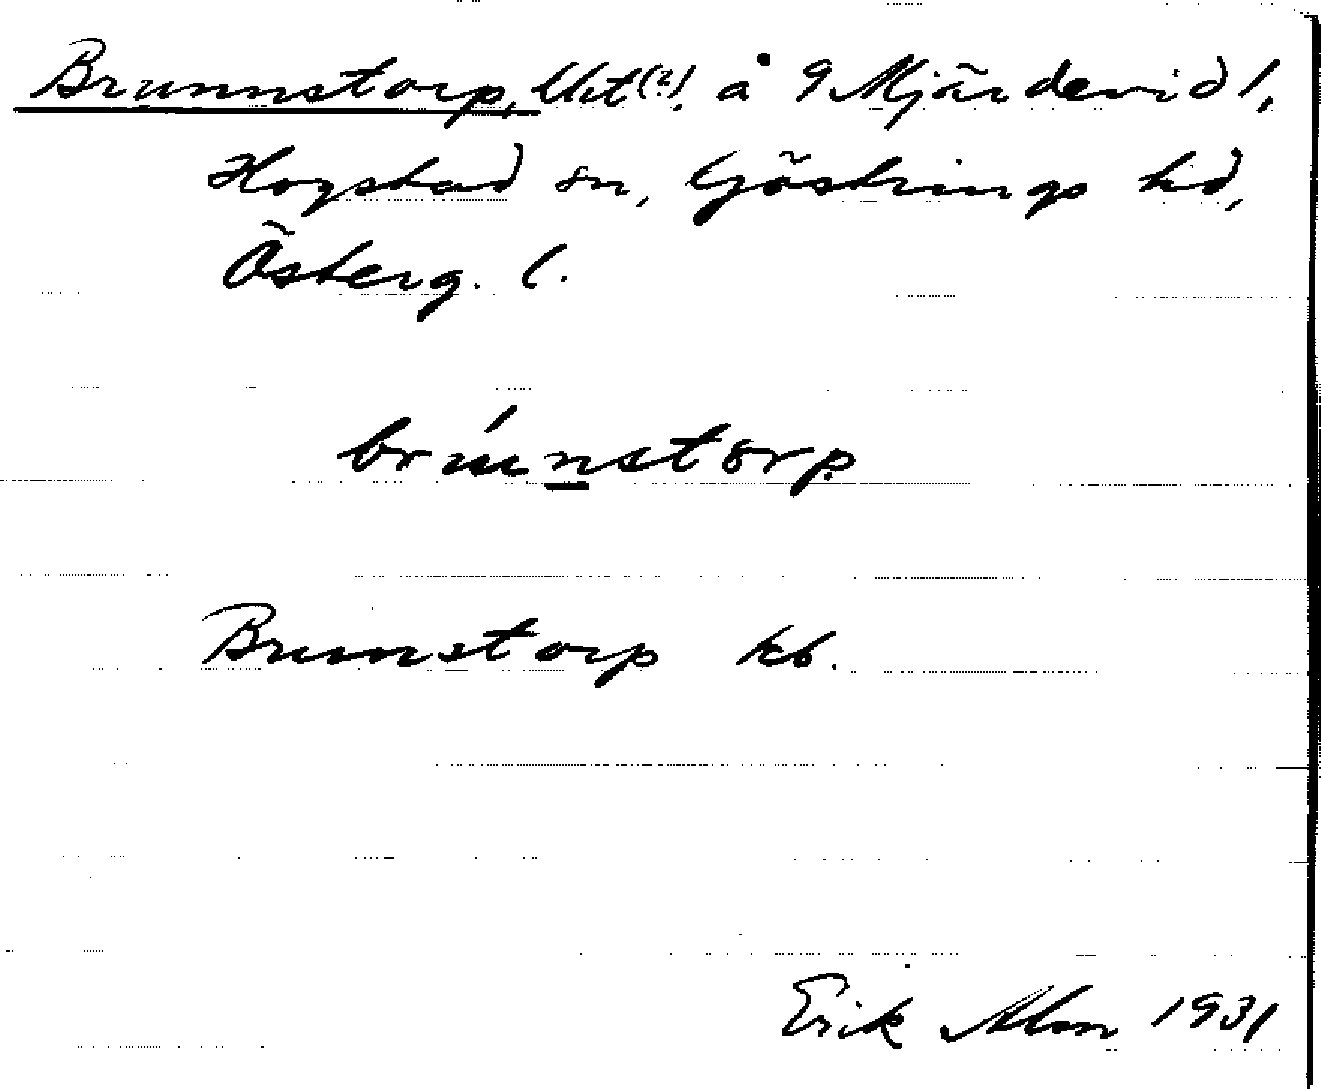 Brunnstorp, Utj(?), å 9 Mjärdevid 1,
Hogstad sn, Göstrings hd,
Österg. l.
brúnstorp.
Brunstorp kb.
Erik Alm 1931